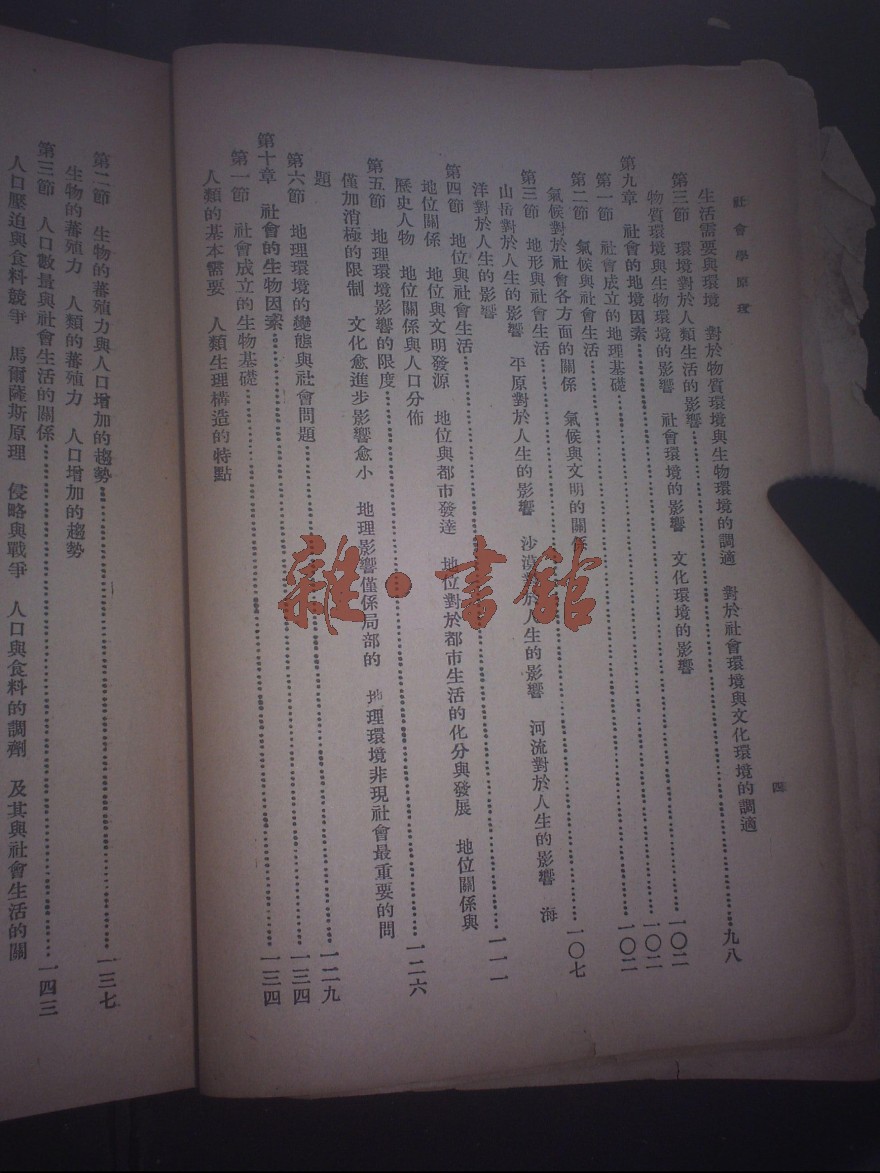 社會學原理
四
生活需要與環境　對於物質環境與生物環境的調適　對於社會環境與文化環境的調適
第三節　環境對於人類生活的影響……九八
物質環境與生物環境的影響　社會環境的影響　文化環境的影響
第九章　社會的地境因素……一〇二
第一節　社會成立的地理基礎……一〇二
第二節　氣候與社會生活……一〇二
氣候對於社會各方面的關係　氣候與文明的關係
第三節　地形與社會生活……一〇七
山岳對於人生的影響　平原對於人生的影響　沙漠對於人生的影響　河流對於人生的影響　海
洋對於人生的影響
第四節　地位與社會生活……一一一
地位關係　地位與文明發源　地位與都市發達　地位對於都市生活的化分與發展　地位關係與
歷史人物　地位關係與人口分佈
第五節　地理環境影響的限度……一二六
僅加消極的限制　文化愈進步影響愈小　地理影響僅係局部的　地理環境非現社會最重要的問
題
第六節　地理環境的變態與社會問題……一二九
第十章　社會的生物因素……一三四
第一節　社會成立的生物基礎……一三四
人類的基本需要　人類生理構造的特點
第二節　生物的蕃殖力與人口增加的趨勢……一三七
生物的蕃殖力　人類的蕃殖力　人口增加的趨勢
第三節　人口數量與社會生活的關係……一四三
人口壓迫與食料競爭　馬爾薩斯原理　侵略與戰爭　人口與食料的調劑　及其與社會生活的關
雜·書館